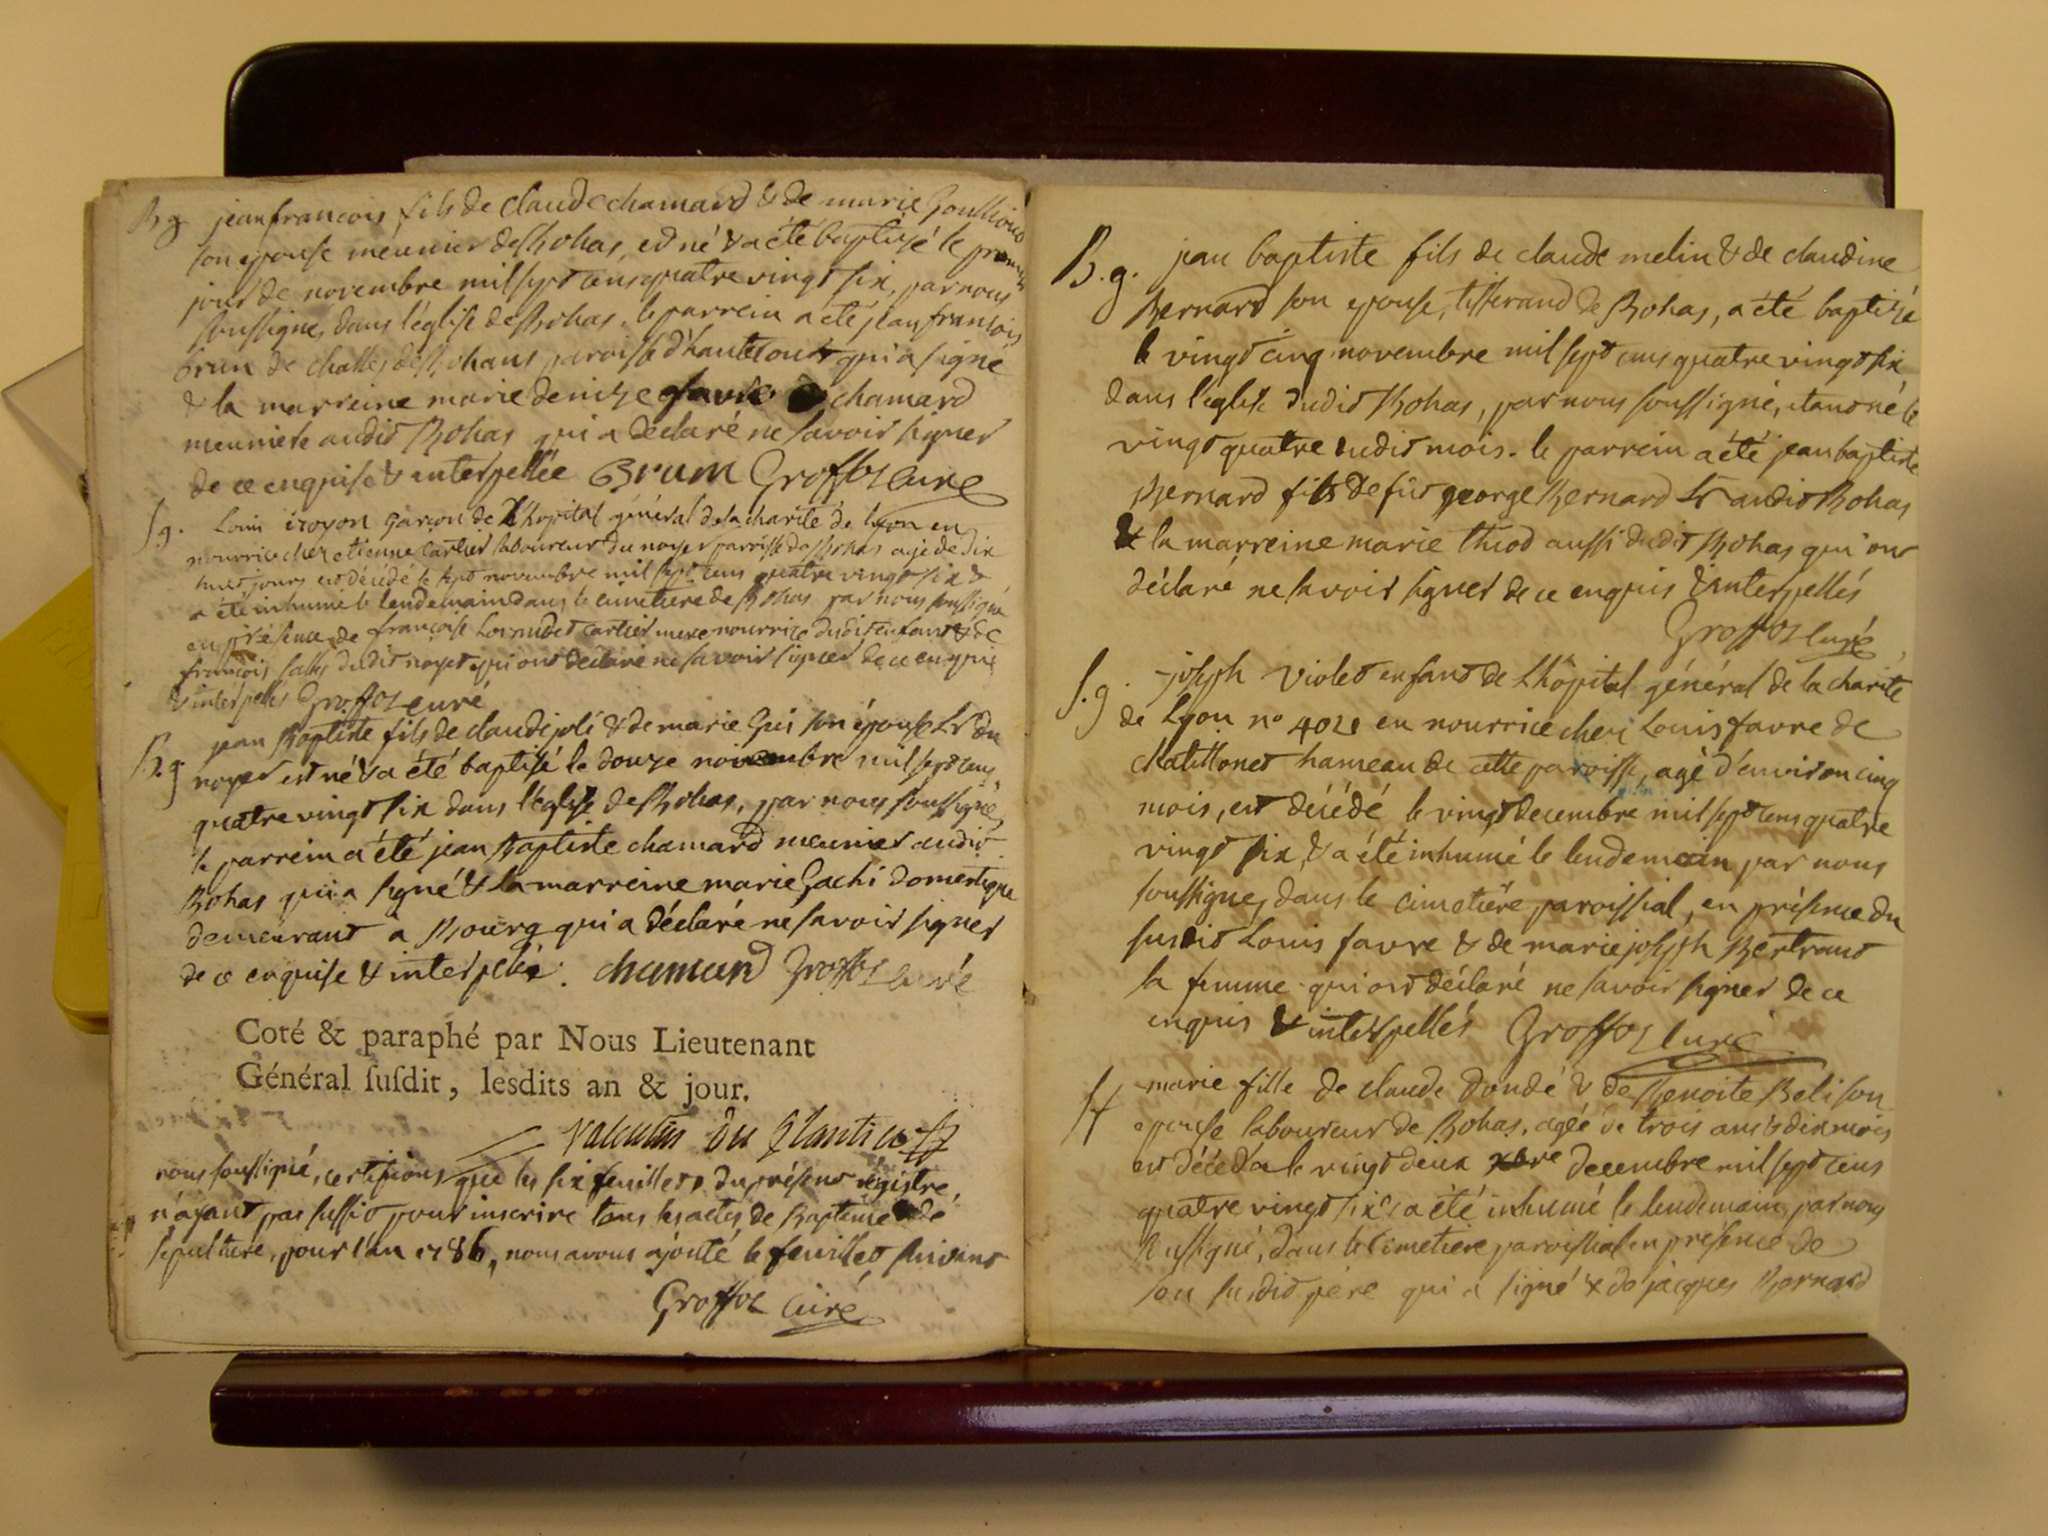 B g jean francois fils de claude chamard & de marie Goullioud
son epouse meûnier de Bohas, est né & a été baptizé le premier
jour de novembre mil sept cens quatre vingt six, par nous
soussigné, dans l'église de Bohas. le parrein a été jean francois
brun de challes de Bohans paroisse d'hautecourt qui a signé
& la marreine marie denize chamard
meuniere audit Bohas qui a déclaré ne savoir signer
de ce enquise & interpellée Brum Groffoz curé
S g. Louis izoyon garçon de Lhopital général de la charité de lyon en
nourrice chez etienne Cartier laboureur du noyer paroisse de Bohas agé de dix
huit jours est décédé le sept novembre mil sept cens quatre vingt six &
a été inhumé le lendemain dans le cimetiere de Bohas par nous soussigné
en présence de françoise cartier mere nourrice dudit enfant & de
françois salles dudit noyer qui ont déclaré ne savoir signer de ce enquis
& interpellés Groffoz curé
B.g jean Baptiste fils de claude joli & de marie Gui son épouse Lr du
noyer est né & a été baptisé le douze novembre mil sept cens
quatre vingt six dans l'église de Bohas, par nous soussigné,
le parrein a été jean Baptiste chamard meunier audit
Bohas qui a signé & la marreine marie Gachi domestique
demeurant a Bourg qui a déclaré ne savoir signer
de ce enquise & interpellée. chamard Groffoz curé
Coté & paraphé par Nous Lieutenant
Général susdit, lesdits an & jour.
Valentin Du Plantier
nous soussigné, certifions que les six feuillets du présent régistre,
n'ayant pas suffit pour inscrire tous les actes de Bapteme & de
sepulture, pour l'an 1786, nous avons ajouté le feuillet suivant
Groffoz curé
B.g. jean baptiste fils de claude melin & de claudine
Bernard son epouse, tisserand de Bohas, a été baptizé
le vingt cinq novembre mil sept cens quatre vingt six
dans l'église dudit Bohas, par nous soussigné, etant né le
vingt quatre dudit mois. le parrein a été jean baptiste
Bernard fils de fût george Bernard Lr audit Bohas
& la marreine marie thiod aussi dudit Bohas qui ont
déclaré ne savoir signer de ce enquis & interpellés
Groffoz curé
S.g. joseph violet enfant de Lhôpital général de la charité
de Lyon no 402 en nourrice chez Louis favre de
chatillonet hameau de cette paroisse, agé d'environ cinq
mois, est décédé le vingt decembre mil sept cens quatre
vingt six, & a été inhumé le lendemain par nous
soussigné, dans le cimetiére paroissial, en présence du
susdit Louis favre & de marie joseph Bertrand
sa femme qui ont déclaré ne savoir signer de ce
enquis & interpellés Groffoz curé
S f marie fille de claude dondé & de Benoite Beli son
epouse laboureur de Bohas, agée de trois ans & dix mois
est décédée le vingt deux xbre decembre mil sept cens
quatre vingt six & a été inhumé le lendemain, par nous
soussigné, dans le cimetiere paroissial en présence de
son susdit pére qui a signé & de jacques Bernard